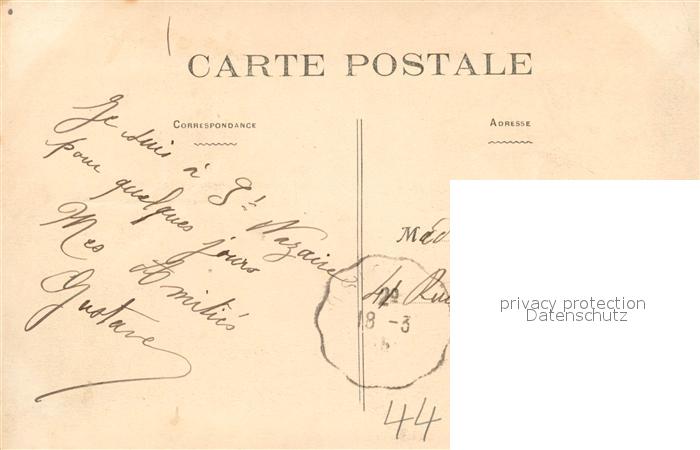 CARTE POSTALE
CORRESPONDANCE
ADRESSE
Je suis à St. Nazaire
pour quelques jours
Mes Amitiés
Gustave
Mad
41 Rue
18 -3
44
privacy protection
Datenschutz